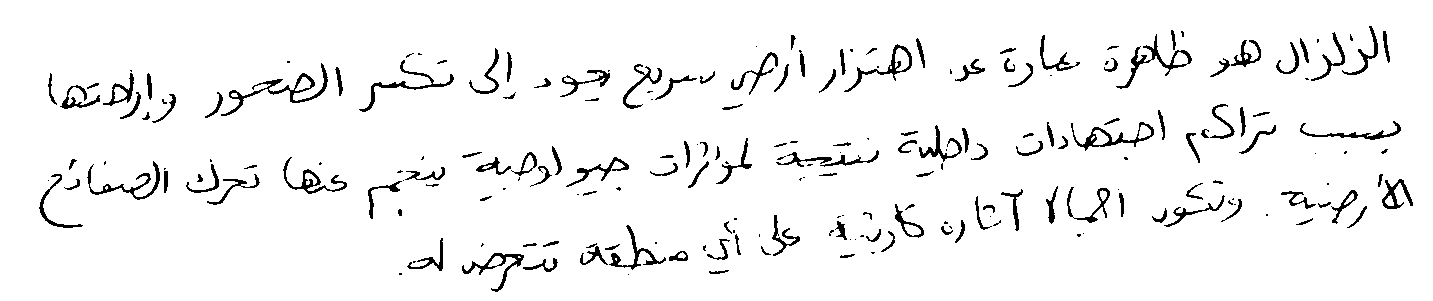 الزلزال هو ظاهرة عبارة عن اهتزاز أرضي سريع يعود إلى تكسر الصخور وإزاحتها
بسبب تراكم اجتهادات داخلية نتيجة لمؤثرات جيولوجية ينجم عنها تحرك الصفائح
الأرضية. وتكون اجمالا آثاره كارثية على أي منطقة تتعرض له.